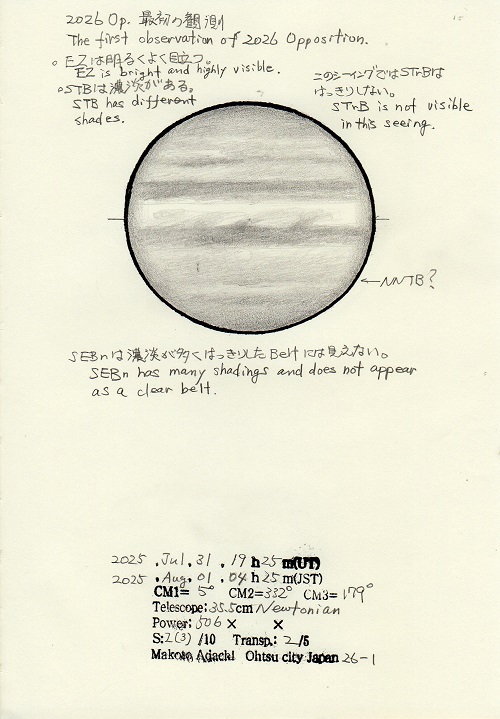 2026 Op. 最初の観測
The first observation of 2026 Opposition.
。EZは明るくよく目立つ。
EZ is bright and highly visible.
。STBは濃淡がある。
STB has different
shades.
このシーイングではSTrBは
はっきりしない。
STrB is not visible
in this seeing.
←NNTB?
SEBnは濃淡が多くはっきりしたBeltには見えない。
SEBn has many shadings and does not appear
as a clear belt.
2025 . Jul. 31 . 19 h 25 m(UT)
2025 . Aug. 01 . 04 h 25 m(JST)
CM1= 5° CM2= 332° CM3= 179°
Telescope: 35.5cm Newtonian
Power: 506 × ×
S: 2(3) /10 Transp.: 2/5
Makoto Adachi Ohtsu city Japan 26-1